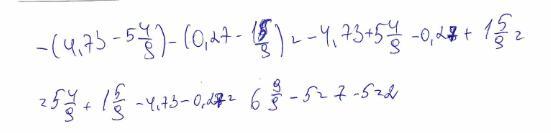 -(4,73-5 4/9)-(0,27-1 5/9)=-4,73+5 4/9-0,27+1 5/9=
=5 4/9+1 5/9-4,73-0,27=6 9/9-5=7-5=2